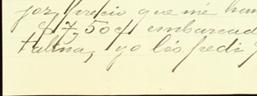 por, precio que me han
$7,50 y embarcad
Tulma, yo los pedi